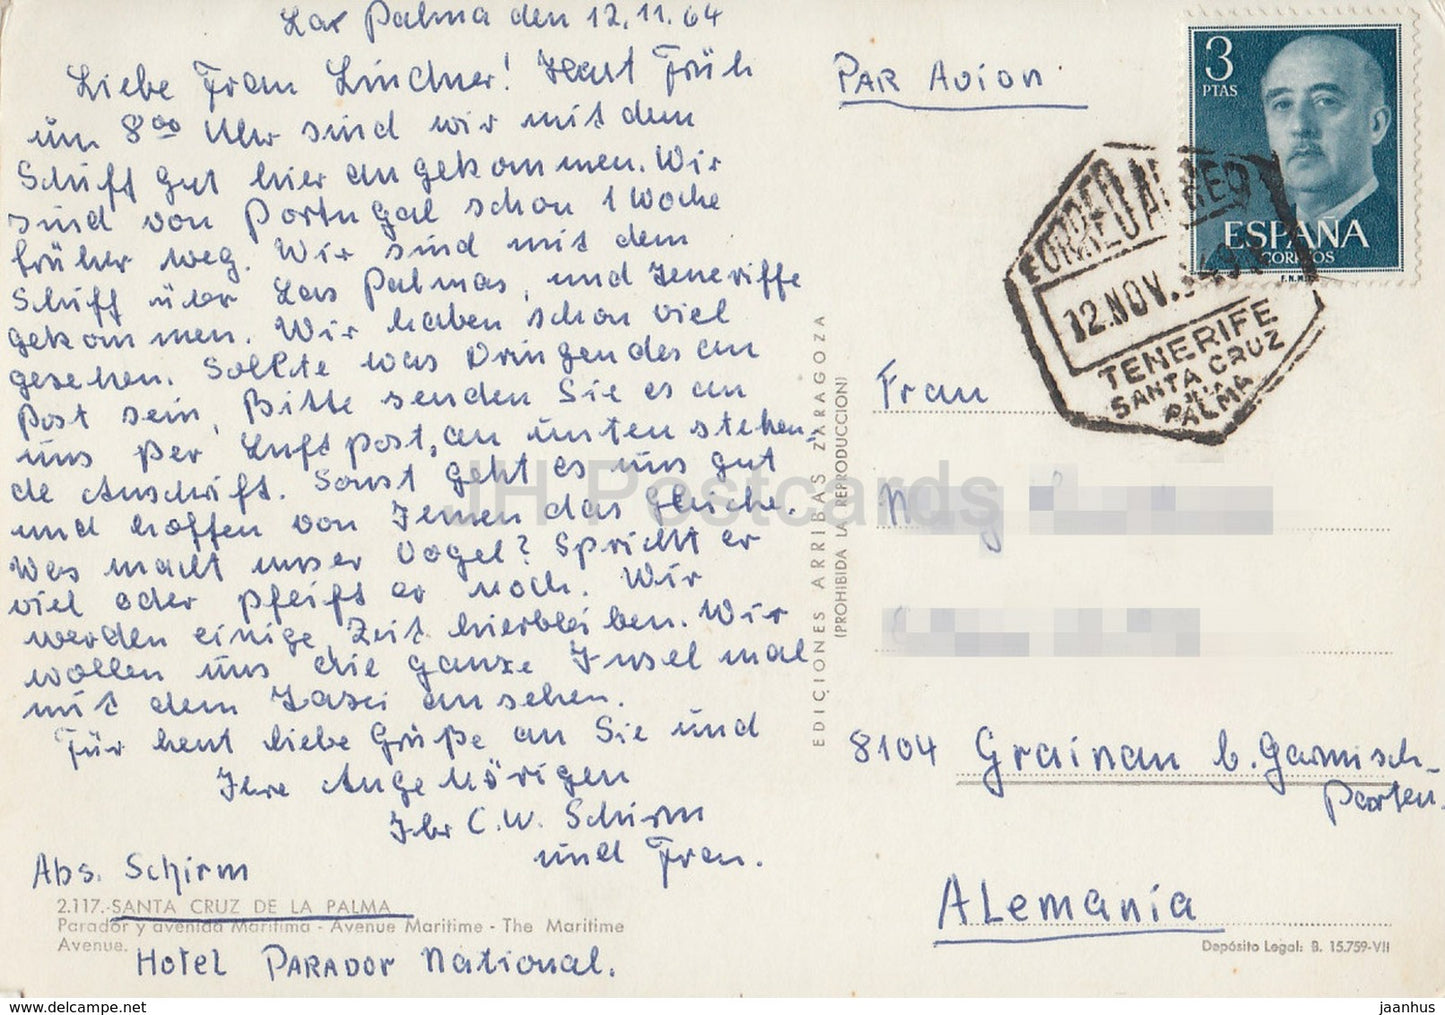 Las Palma den 12.11.64
Liebe Frau Lindner! Heut Früh
um 8⁰⁰ Uhr sind wir mit dem
Schiff gut hier angekommen. Wir
sind von Portugal schon 1 Woche
früher weg. Wir sind mit dem
Schiff über Las Palmas, und Teneriffe
gekommen. Wir haben schon viel
gesehen. Sollte was Dringendes an
Post sein, Bitte senden Sie es an
uns per Luftpost, an unten stehen-
de Anschrift. Sonst geht es uns gut
und hoffen von Ihnen das Gleiche.
Was macht unser Vogel? Spricht er
viel oder pfeift er noch. Wir
werden einige Zeit hierbleiben. Wir
wollen uns die ganze Insel mal
mit dem Taxi ansehen.
Für heut liebe Grüße an Sie und
Ihre Angehörigen
Ihr C.W. Schirm
und Frau.
Abs. Schirm
2.117.-SANTA CRUZ DE LA PALMA
Parador y avenida Marítima - Avenue Maritime - The Maritime
Avenue.
Hotel PARADOR National.
EDICIONES ARRIBAS ZARAGOZA
(PROHIBIDA LA REPRODUCCION)
PAR AVION
3
PTAS
ESPAÑA
CORREOS
F.N.M.T.
CORREO AEREO
12.NOV.
TENERIFE
SANTA CRUZ
PALMA
Frau
8104 Grainau b. Garmisch-
Parten.
ALemania
Depósito Legal: B. 15.759-VII
JH Postcards
www.delcampe.net
jaanhus